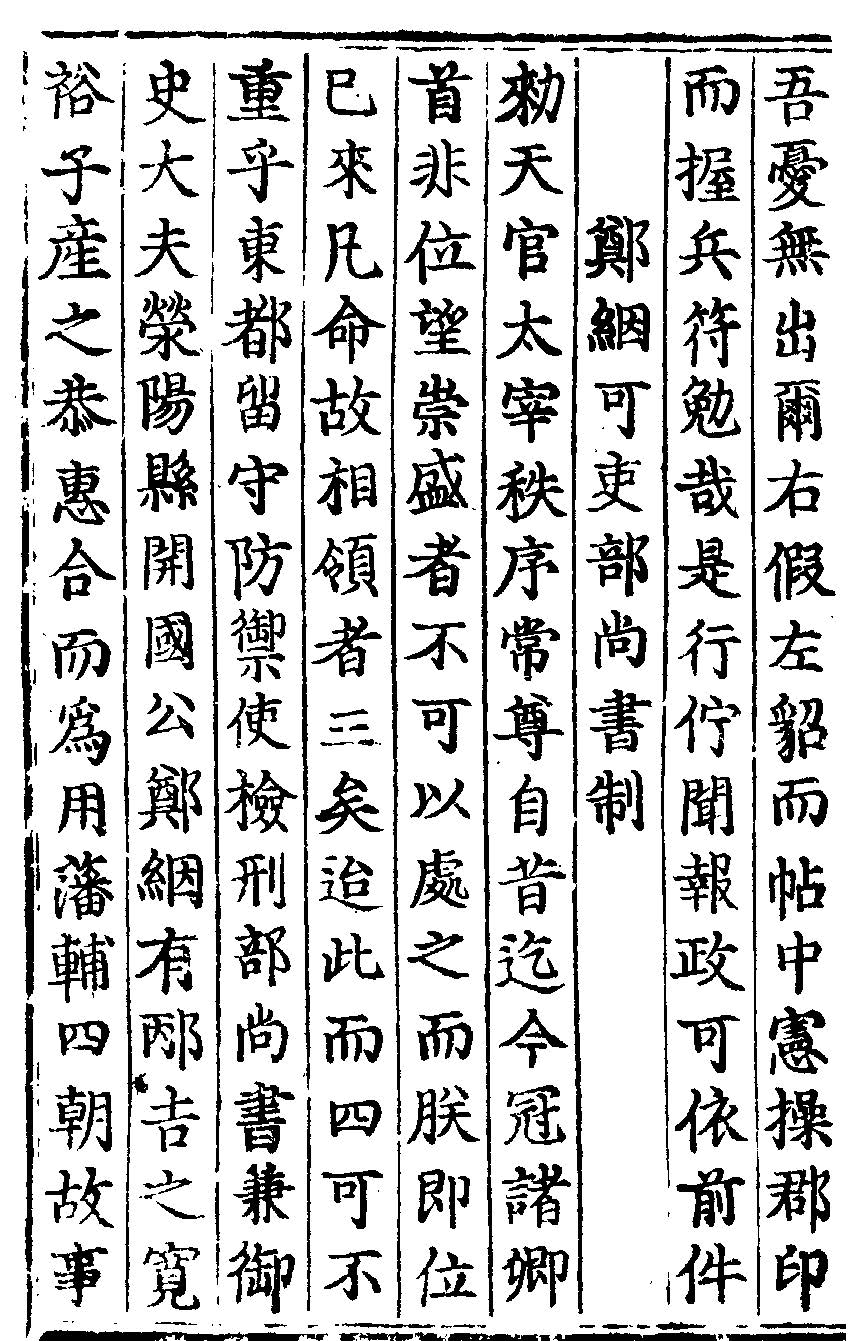 吾憂無出爾右假左貂而帖中憲操郡印
而握兵符勉哉是行佇聞報政可依前件
鄭絪可吏部尚書制
勑天官太宰秩序常尊自昔迄今冠諸卿
首非位望崇盛者不可以處之而朕即位
已來凡命故相領者三矣迨此而四可不
重乎東都留守防禦使檢刑部尚書兼御
史大夫滎陽縣開國公鄭絪有邴吉之寬
裕子產之恭惠合而爲用藩輔四朝故事